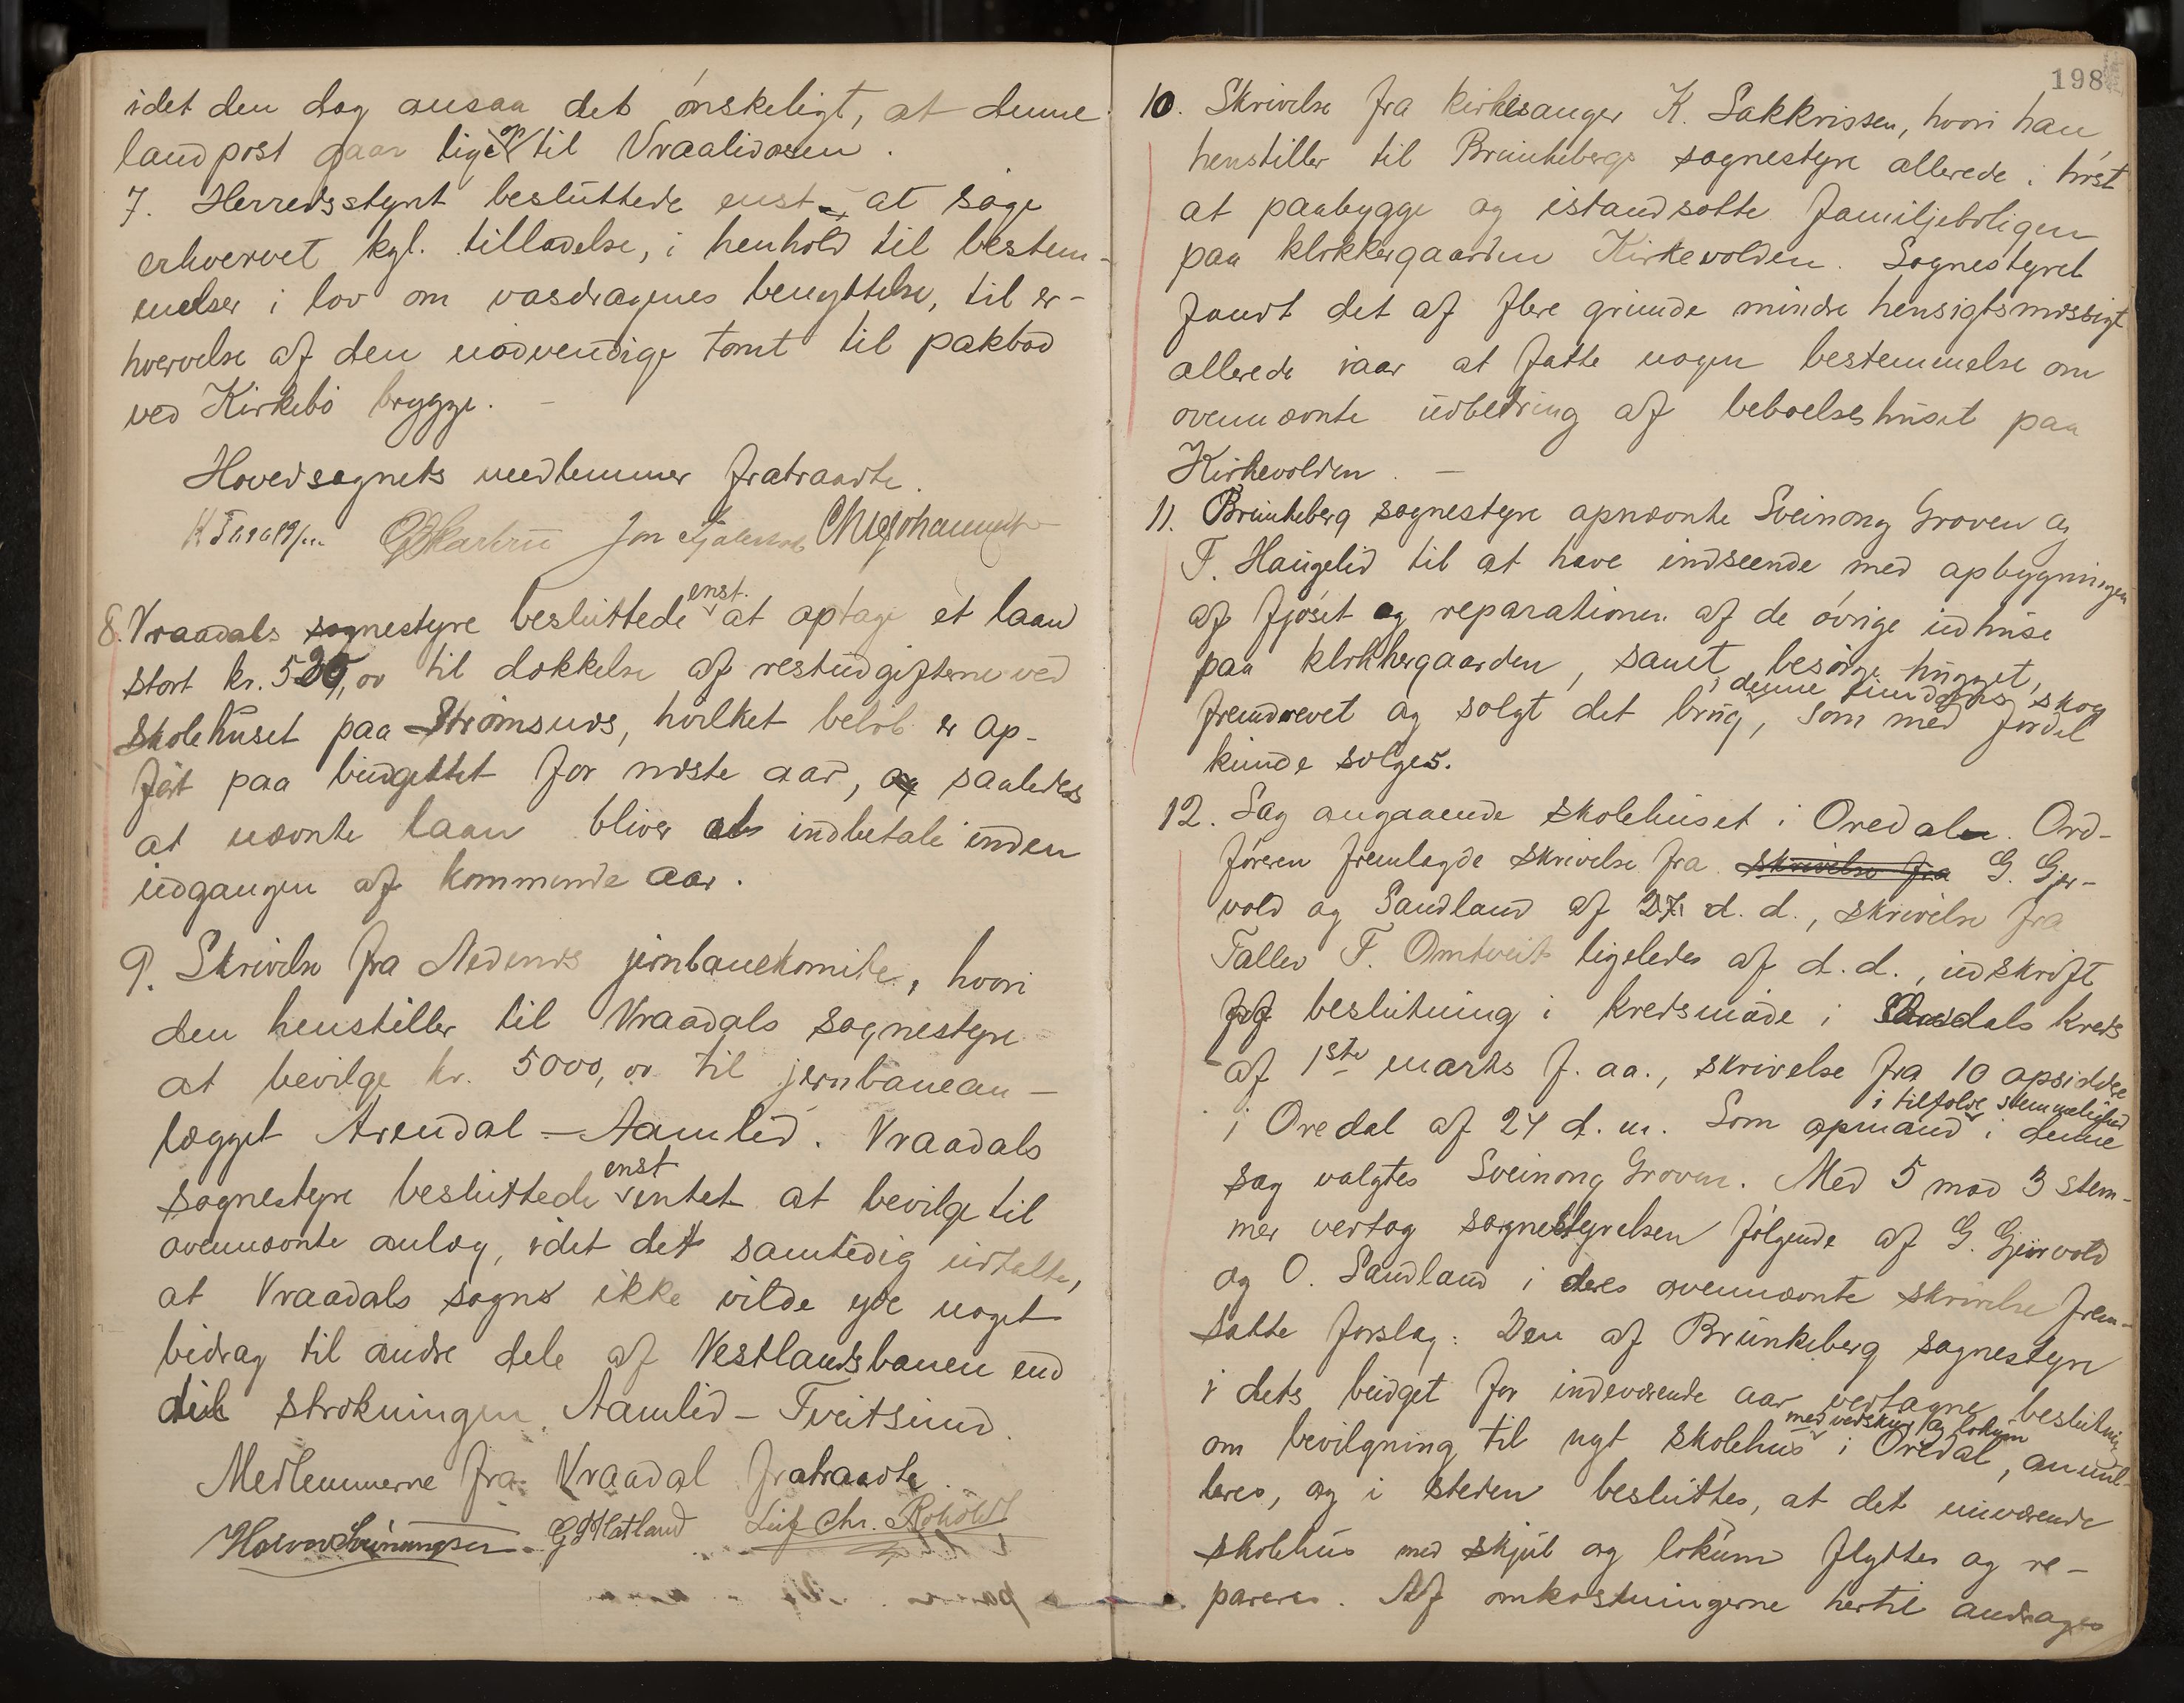 idet den dog ansaa det ønskeligt, at denne
landpost gaar lige op til Vraaliosen.
7. Herredsstyret besluttede enst. at søge
erhvervet kgl. tilladelse, i henhold til bestem-
melser i lov om vasdragenes benyttelse, til er-
hvervelse af den nødvendige tomt til pakbod
ved Kirkebø brygge. –
Hovedsognets medlemmer fratraadte.
8. Vraadals sognestyre besluttede enst. at optage et laan
stort kr. 520,00 til dækkelse af restudgifterne ved
skolehuset paa Strømsnes, hvilket beløb er op-
ført paa budgettet for næste aar, saaledes
at nævnte laan bliver at indbetale inden
udgangen af kommende aar.
9. Skrivelse fra Nedenes jernbanekomite, hvori
den henstiller til Vraadals sognestyre
at bevilge kr. 5000,00 til jernbanean-
lægget Arendal – Aamlid. Vraadals
sognestyre besluttede enst intet at bevilge til
ovennævnte anlæg, idet det samtidig udtalte,
at Vraadals sogns ikke vilde yde noget
bidrag til andre dele af Vestlandsbanen end
til strækningen Aamlid – Tveitsund.
Medlemmerne fra Vraadal fratraadte
Halvor Sveinungsen. G. Hatland Leif Chr. Roholdt
198
10. Skrivelse fra kirkesanger K. Sakkrissen, hvori han
henstiller til Brunkebergs sognestyre allerede i høst
at paabygge og istandsætte familjeboligen
paa klokkergaarden Kirkevolden. Sognestyret
fandt det af flere grunde mindre hensigtsmæssigt
allerede iaar at fatte nogen bestemmelse om
ovennævnte udbedring af beboelseshuset paa
Kirkevolden. –
11. Brunkeberg sognestyre opnævnte Sveinong Groven og
T. Haugelid til at have indseende med opbygningen
af fjøset og reparationen af de øvrige udhuse
paa klokkergaarden, samt besørge hugget,
fremdrevet og solgt det brug, i denne eiendoms skog som med fordel
kunde sælges.
12. Sag angaaende skolehuset i Øredalen. Ord-
føreren fremlagde skrivelse fra skrivelse fra G. Gjer-
vold og Sandland af 27 d. d., skrivelse fra
Tallev T. Omtveit ligeledes af d. d., udskrift
af beslutning i kredsmøde i kreds
af 1ste marts f. aa., skrivelse fra 10 opsiddere
i Øredal af 24 d. m. Som opmand i tilfælde stemmelighed i denne
sag valgtes Sveinong Groven. Med 5 mod 3 stem-
mer vedtog sognestyrelsen følgende af G. Gjervold
og O. Sandland i deres ovennævnte skrivelse frem-
satte forslag: Den af Brunkeberg sognestyre
i dets budget for indeværende aar vedtagne beslutning
om bevilgning til nyt skolehus med vedskur og lokum i Øredal, annul-
leres, og i steden besluttes, at det nuværende
skolehus med skjul og lokum flyttes og re-
pareres. Af omkostningerne hertil andrages